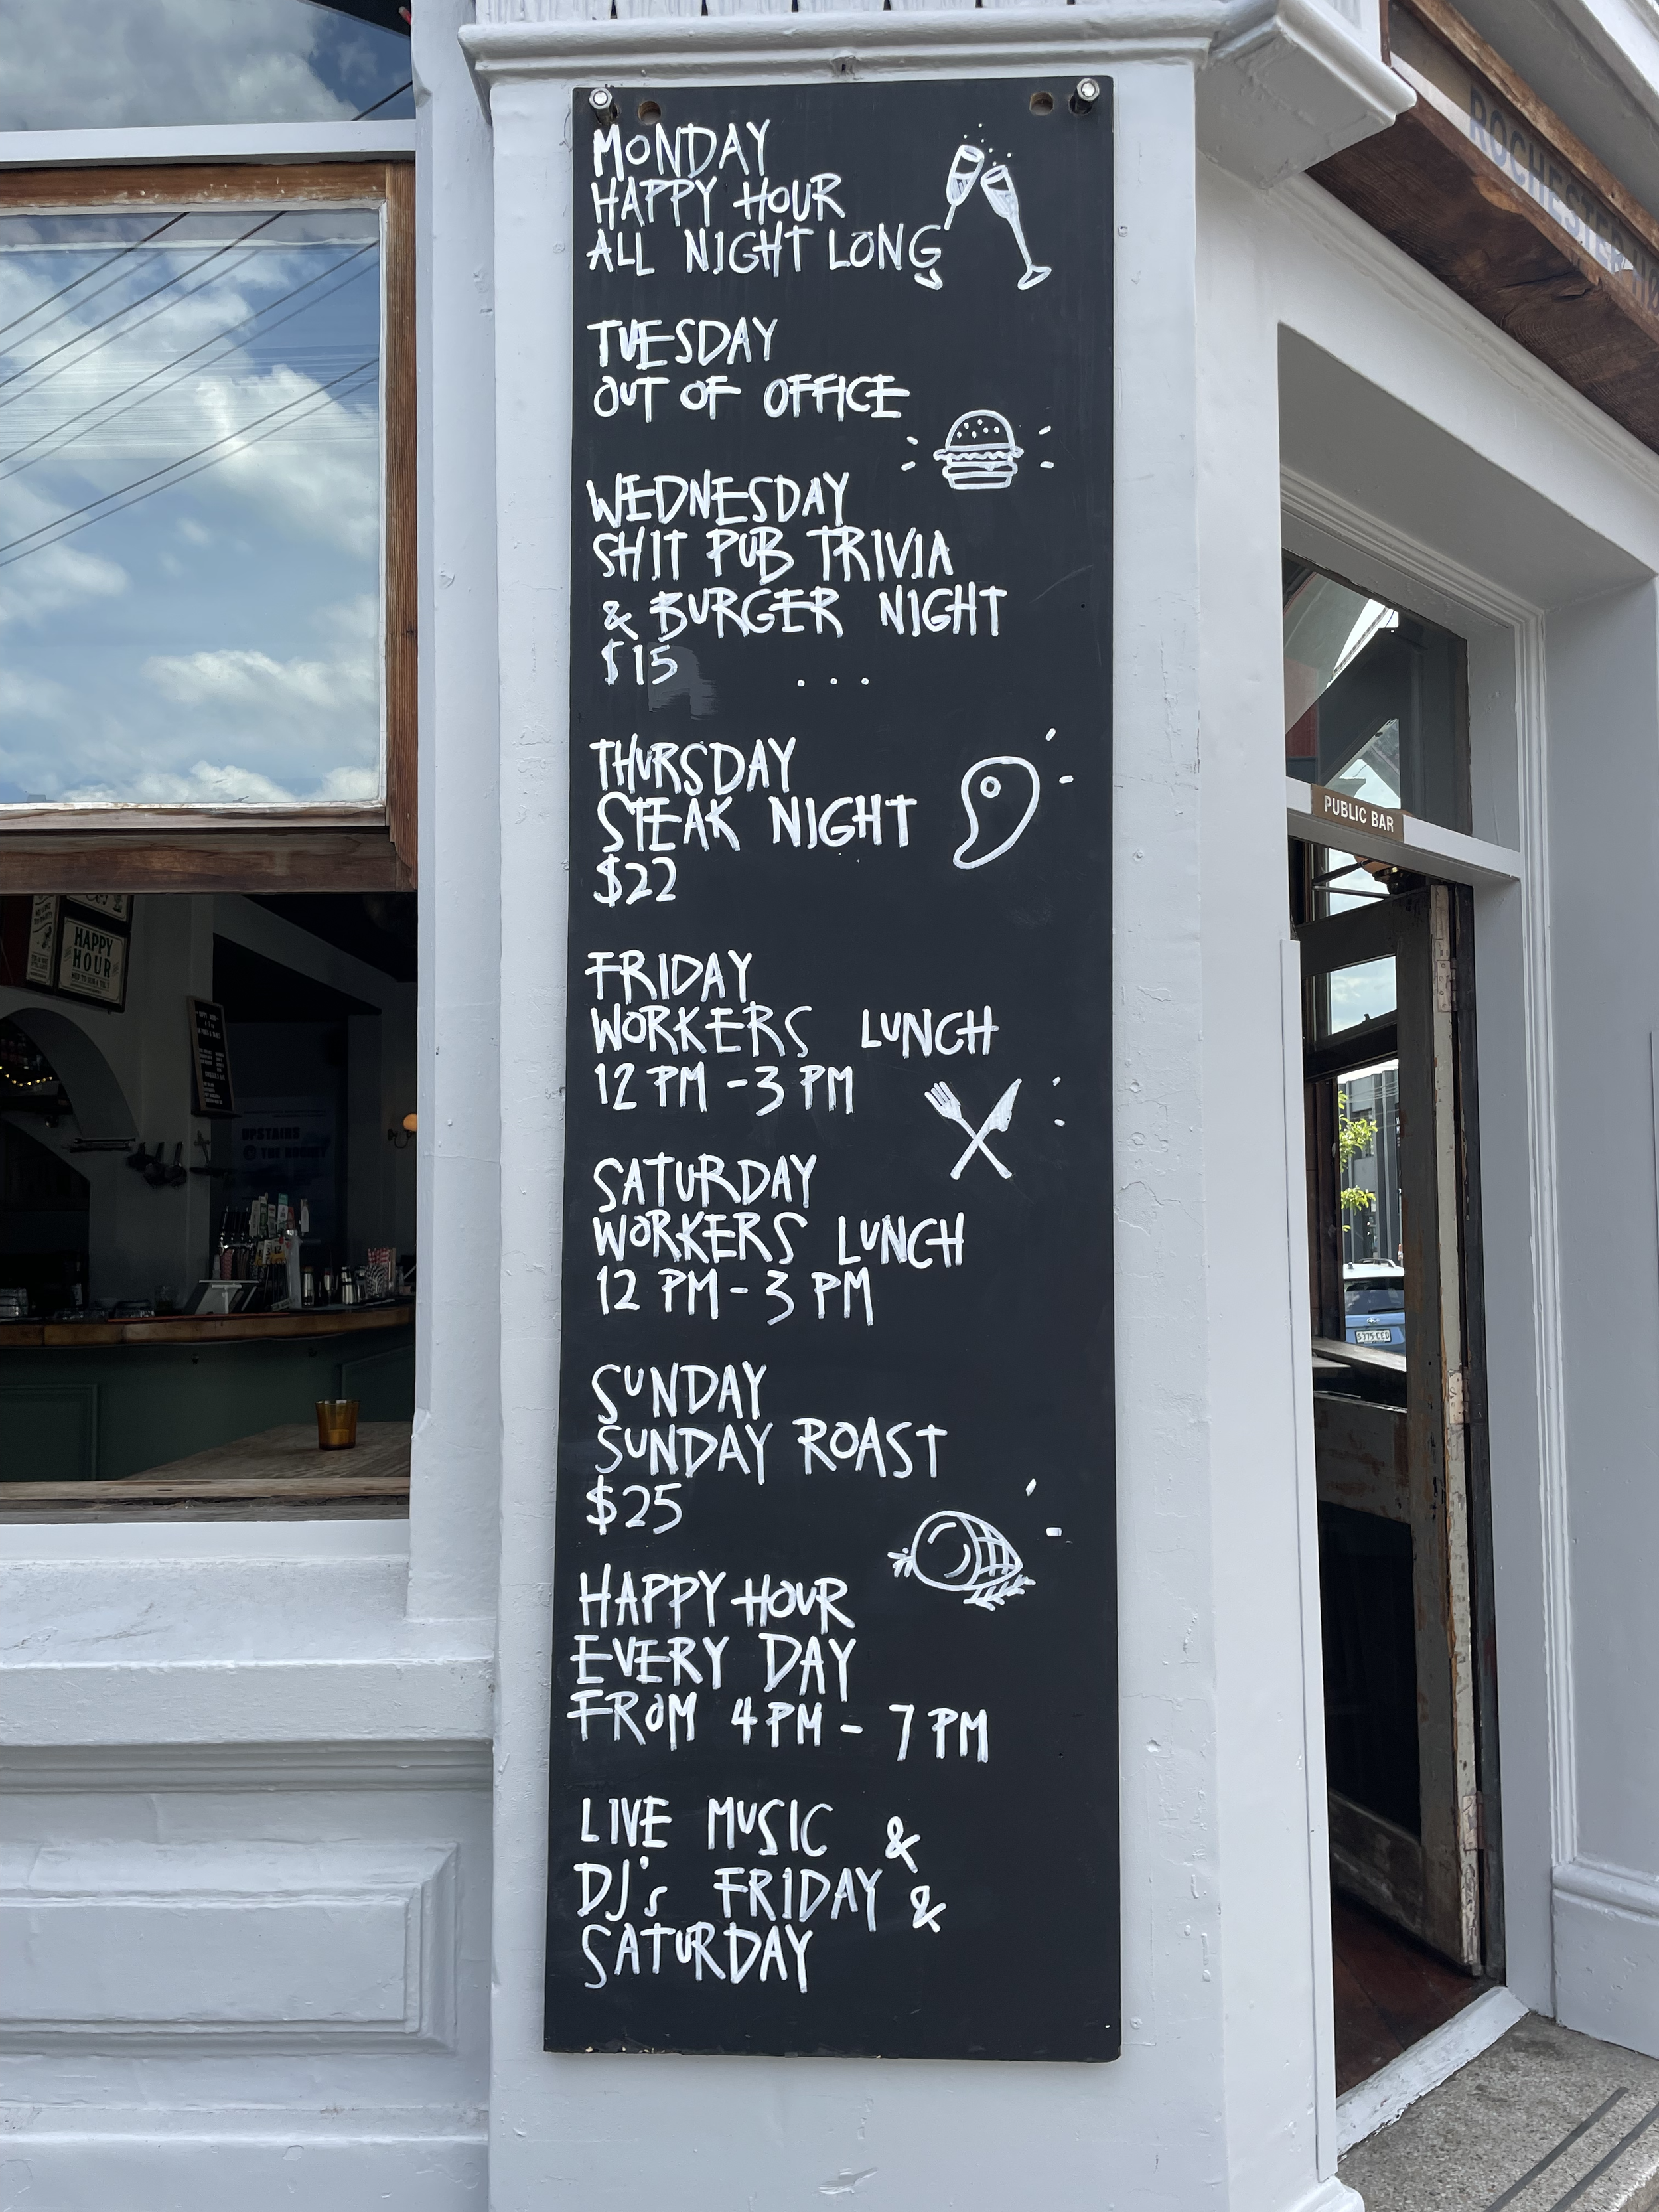 MONDAY
HAPPY HOUR
ALL NIGHT LONG
TUESDAY
OUT OF OFFICE
WEDNESDAY
SHIT PUB TRIVIA
& BURGER NIGHT
$15 ...
THURSDAY
STEAK NIGHT
$22
FRIDAY
WORKERS LUNCH
12 PM - 3 PM
SATURDAY
WORKERS LUNCH
12 PM - 3 PM
SUNDAY
SUNDAY ROAST
$25
HAPPY HOUR
EVERY DAY
FROM 4 PM - 7 PM
LIVE MUSIC &
DJ's FRIDAY &
SATURDAY
ROCHESTER
PUBLIC BAR
HAPPY
HOUR
UPSTAIRS